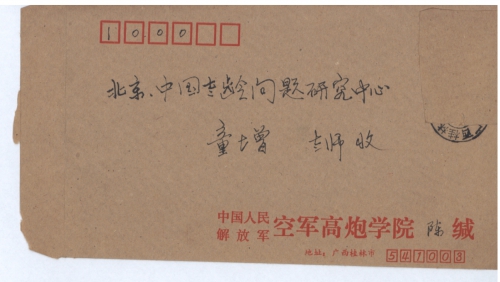 10000
北京、中国老龄问题研究中心
童增 老师 收
中国人民
解放军 空军高炮学院 陈 缄
地址：广西桂林市 541003